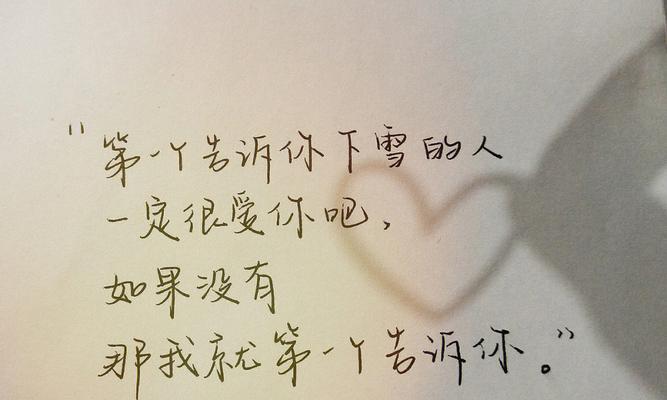 “第一个告诉你下雪的人
一定很爱你吧，
如果没有
那我就第一个告诉你。”